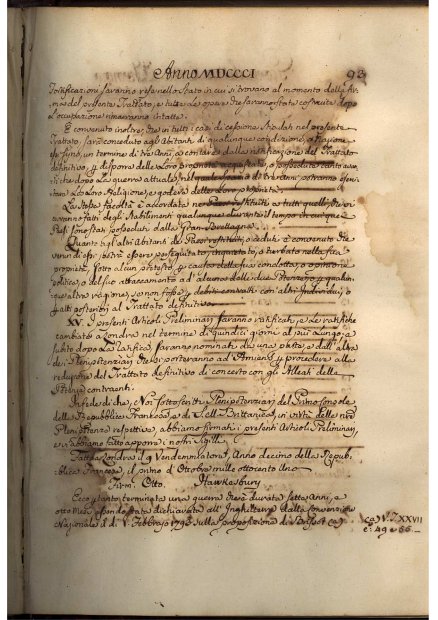 Anno MDCCCI
93
Fortificazioni saranno rese nello Stato in cui si trovano al momento della fir-
ma del presente Trattato, e tutte le opere che saranno state costruite dopo
l'occupazione rimarranno intatte.
È convenuto inoltre, che in tutti i casi di cessione stipolati nel presente
Trattato, sarà conceduto agli Abitanti di qualunque condizione, o Nazione
che siino, un termine di tre Anni, a contare dalla notificazione del Trattato
definitivo, per disporre delle Loro proprietà acquistate, o possedute tanto avan-
ti che dopo La guerra attuale, nel quale di tre Anni, potranno eserci-
tare La Loro Religione, e godere delle Loro proprietà.
La stessa facoltà è accordata ne' Paesi restituiti a tutti quelli, che vi
avranno fatti degli Stabilimenti qualunque durante il tempo in cui que'
Paesi sono stati posseduti dalla Gran-Brettagna.
Quanto agli altri Abitanti de' Paesi restituiti, o ceduti è convenuto che
niuno di essi potrà essere perseguitato, inquietato, o turbato nella sua
proprietà, sotto alcun pretesto, per causa della sua condotta, o opinione
politica, o del suo attaccamento ad alcuna delle due Potenze, o per qualun-
que altra ragione, se non fosse per debiti contratti con altri Individui, o per
fatti posteriori al Trattato definitivo.
XV. I presenti Articoli Preliminari saranno ratificati, e Le ratifiche
cambiate a Londra nel termine di quindici giorni al più Lungo, e
subito dopo La ratifica, saranno nominati da una parte, e dall'altra
dei Plenipotenziari che si porteranno ad Amiens per procedere alla
redazione del Trattato definitivo di concerto con gli Alleati delle
Potenze contraenti.
In fede di che, Noi sottoscritti Plenipotenziari del Primo Console
della Repubblica Francese, e di S. M. Brittanica, in virtù delle nostre
Plenipotenze respettive, abbiamo firmati i presenti Articoli Preliminari,
e vi abbiamo fatto apporre i nostri Sigilli.
Fatto a Londra il 9 Vendemmiatore, Anno decimo della Repub-
blica Francese, il primo di Ottobre mille ottocento Uno
Firm. Otto. Hawkesbury
Ecco pertanto terminata una guerra fiera durata sett'Anni, e
otto Mesi essendo stata dichiarata all'Inghilterra dalla Convenzione
Nazionale il dì 1 Febbrajo 1793 sulla proposizione di Brissot (a)
(a) V. T. XXVII
c. 49 e 56.